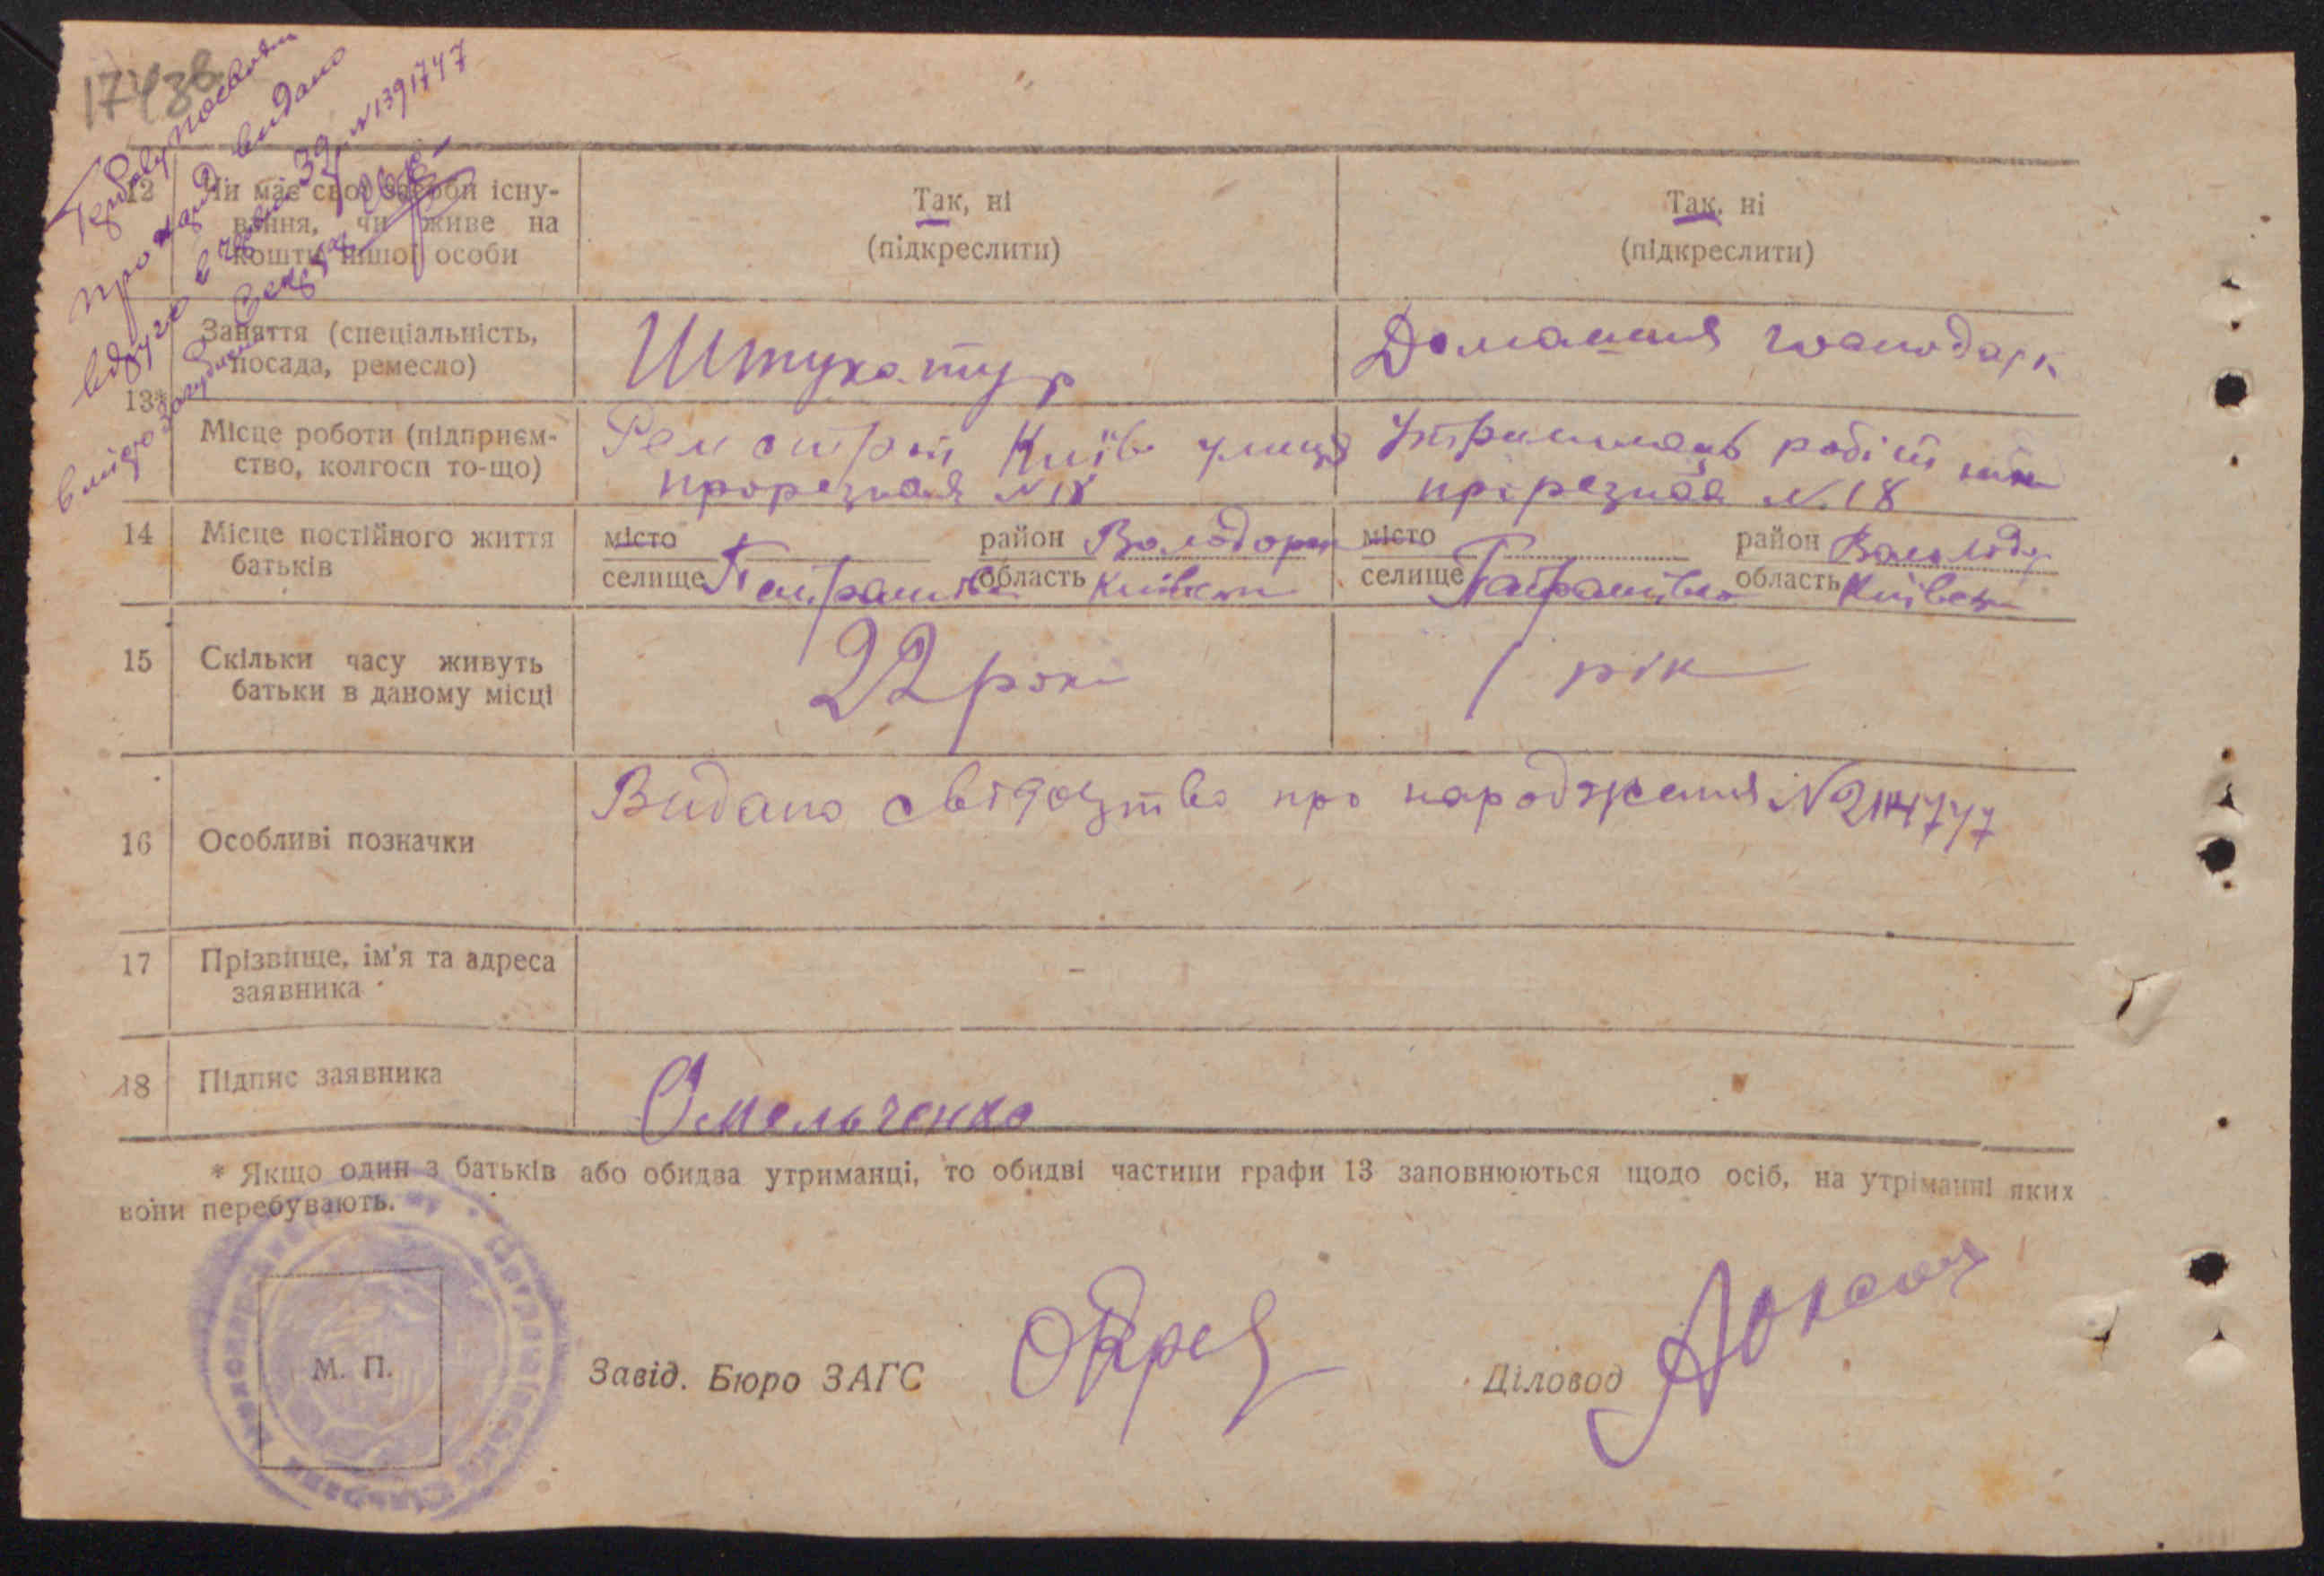 17438
видано
№ 1391747
12 Чи має свої засоби існу-
вання, чи живе на
кошти іншої особи
Так, ні
(підкреслити)
Так, ні
(підкреслити)
13*
Заняття (спеціальність,
посада, ремесло)
Штукатур
Домашня господарк
Місце роботи (підприєм-
ство, колгосп то-що)
Київ улиця
прорезная № 18
робіт
прорезная № 18
14 Місце постійного життя
батьків
місто район Володарк
селище Петрашівка область Київськ
місто район Володар
селище Петрашівка область Київськ
15 Скільки часу живуть
батьки в даному місці
22 роки
1 рік
16 Особливі позначки
Видано свідоцтво про народження № 2114747
17 Прізвище, ім'я та адреса
заявника
18 Підпис заявника
Омельченко
* Якщо один з батьків або обидва утриманці, то обидві частини графи 13 заповнюються щодо осіб, на утріманні яких
вони перебувають.
М. П.
Завід. Бюро ЗАГС
Діловод